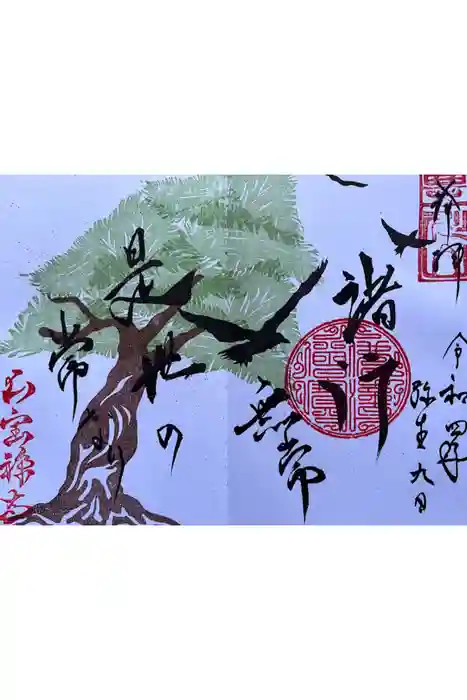 奉拝
令和四年
弥生九日
諸行
無常
是世の
常なり
宝禅寺